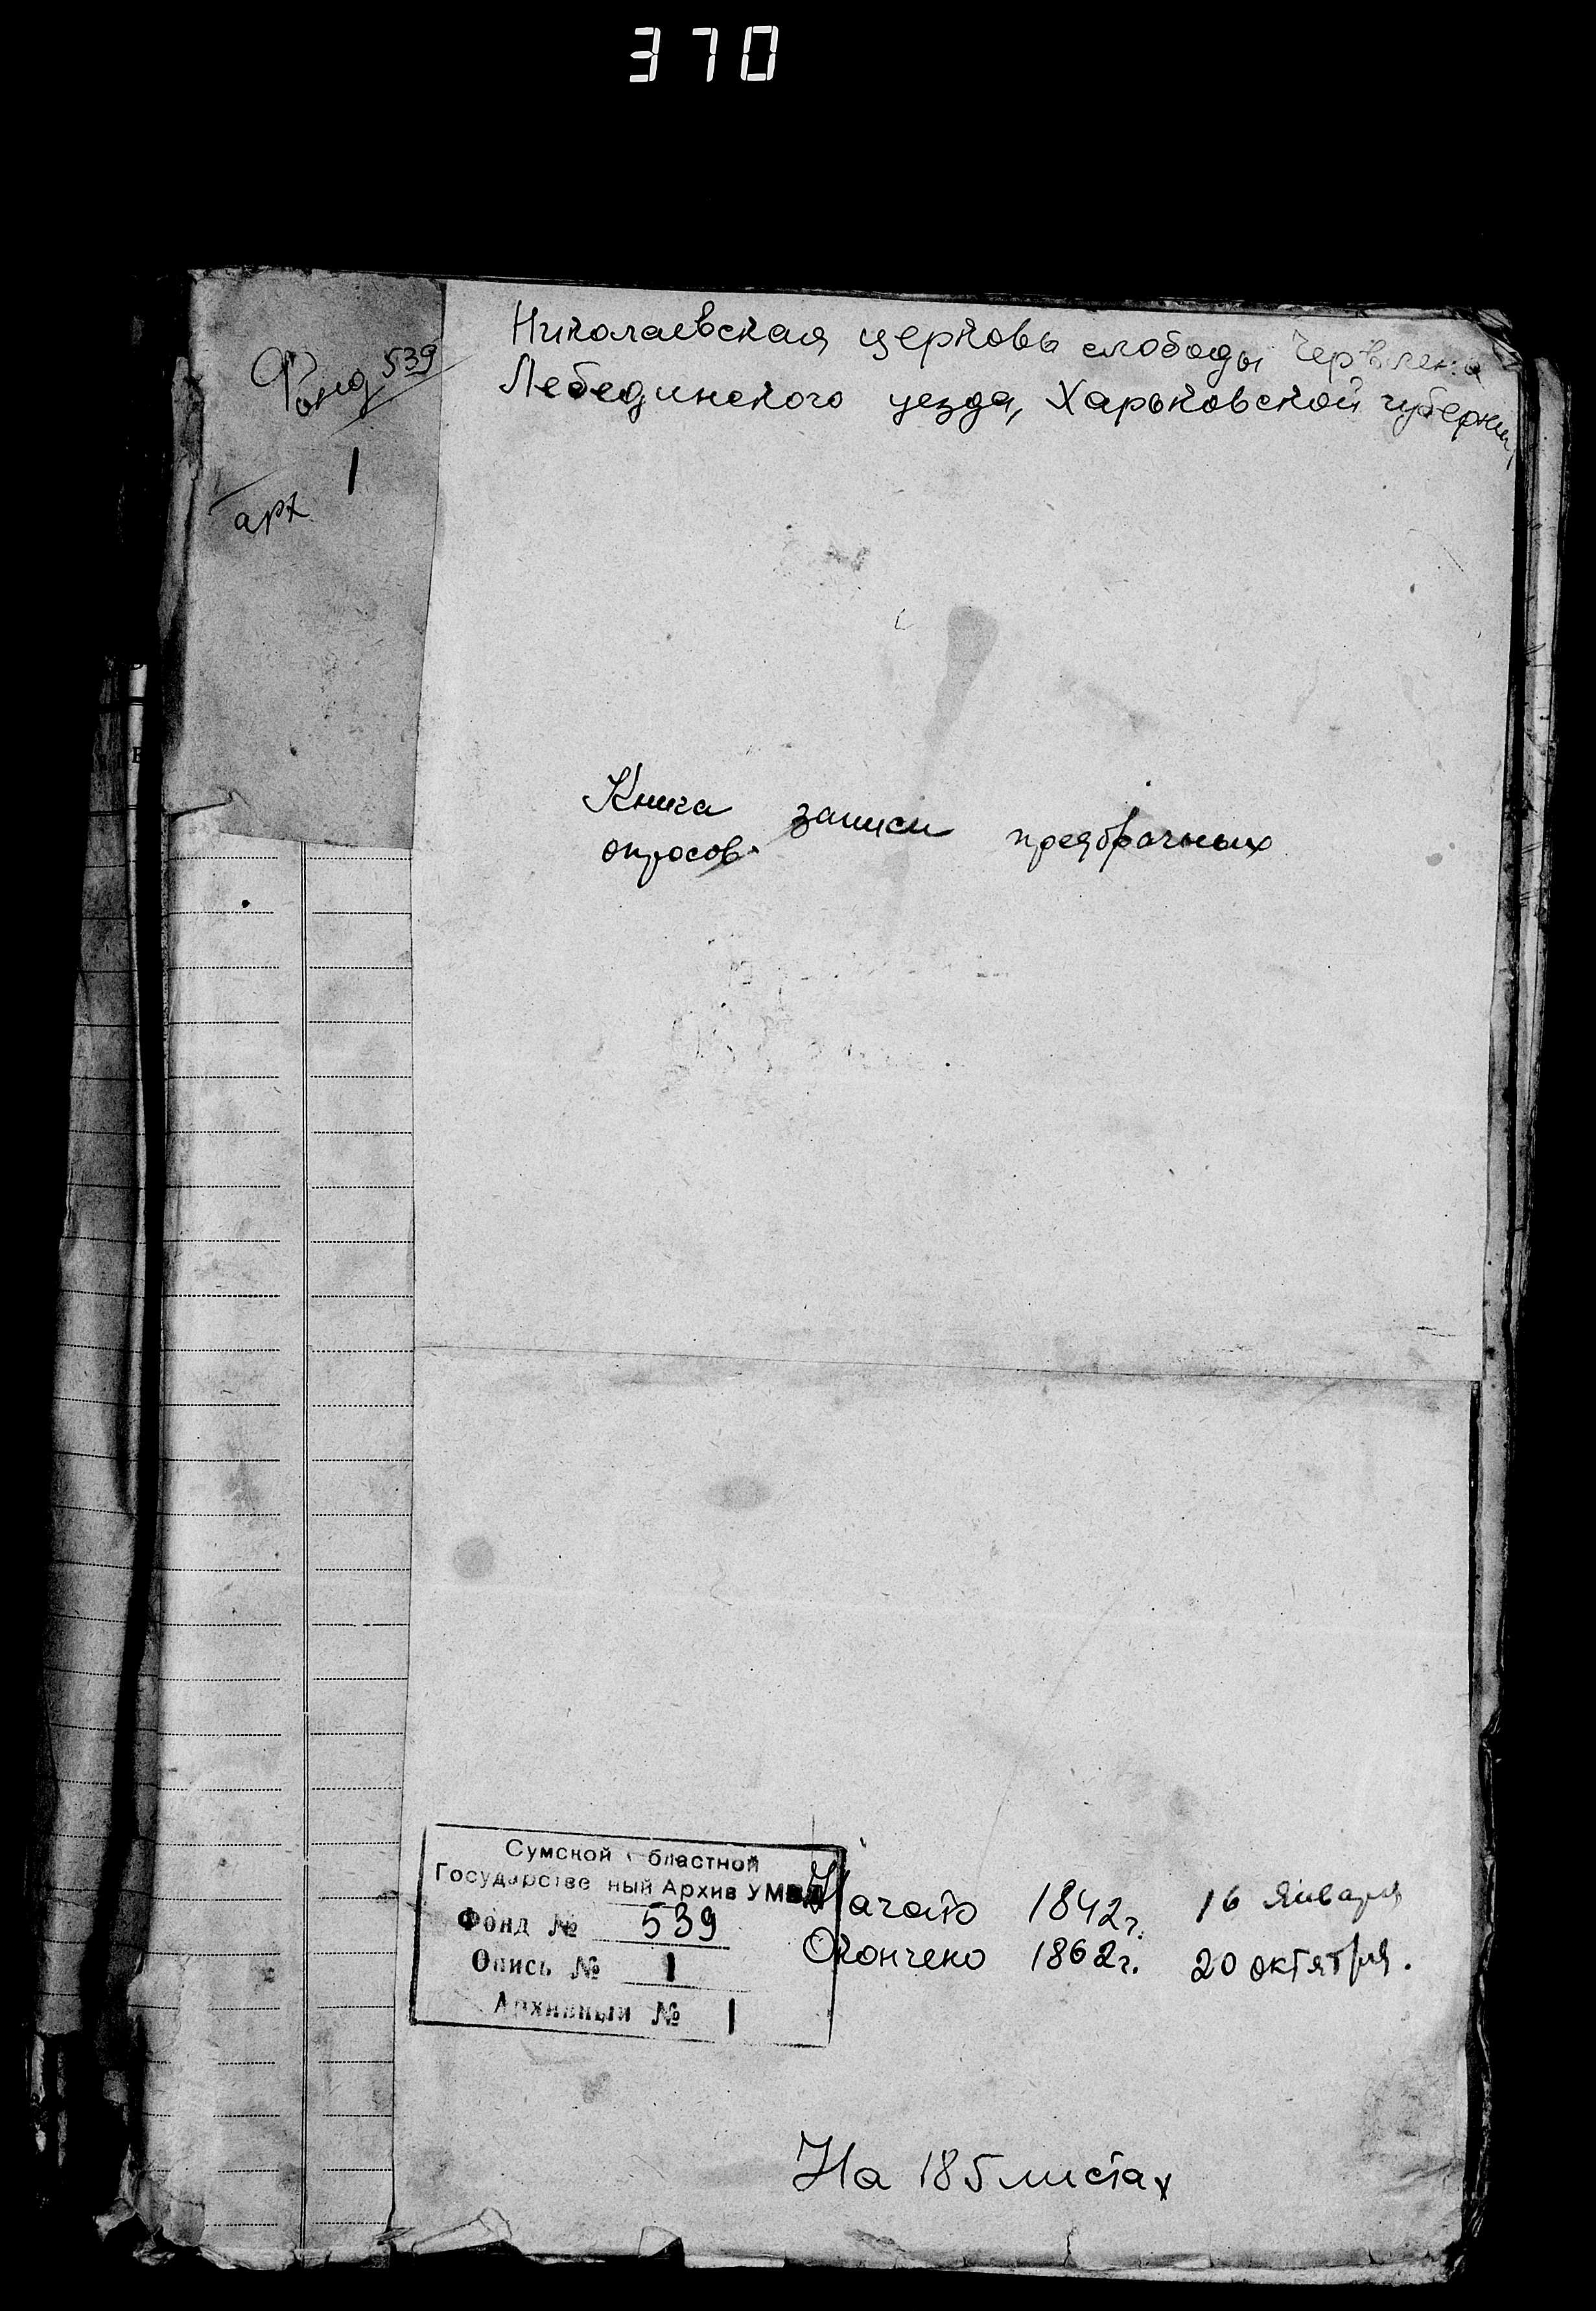 370
Фонд 539
арх 1
Николаевская церковь слободы Червлена
Лебединского уезда, Харьковской губернии,
Книга записи предбрачных
опросов.
Сумской бластной
Государстве ный Архив УМВД
Фонд № 539
Опись № 1
Архивный № 1
Начато 1842г. 16 января
Окончено 1862г. 20 октября.
На 185 листах